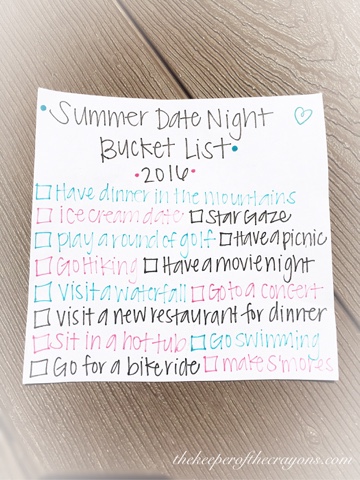 Summer Date Night
Bucket List
2016
Have dinner in the mountains
ice cream date Star Gaze
play a round of golf Have a picnic
Go Hiking Have a movie night
Visit a waterfall Go to a concert
visit a new restaurant for dinner
Sit in a hot tub Go swimming
Go for a bike ride make s'mores
thekeeperofthecrayons.com